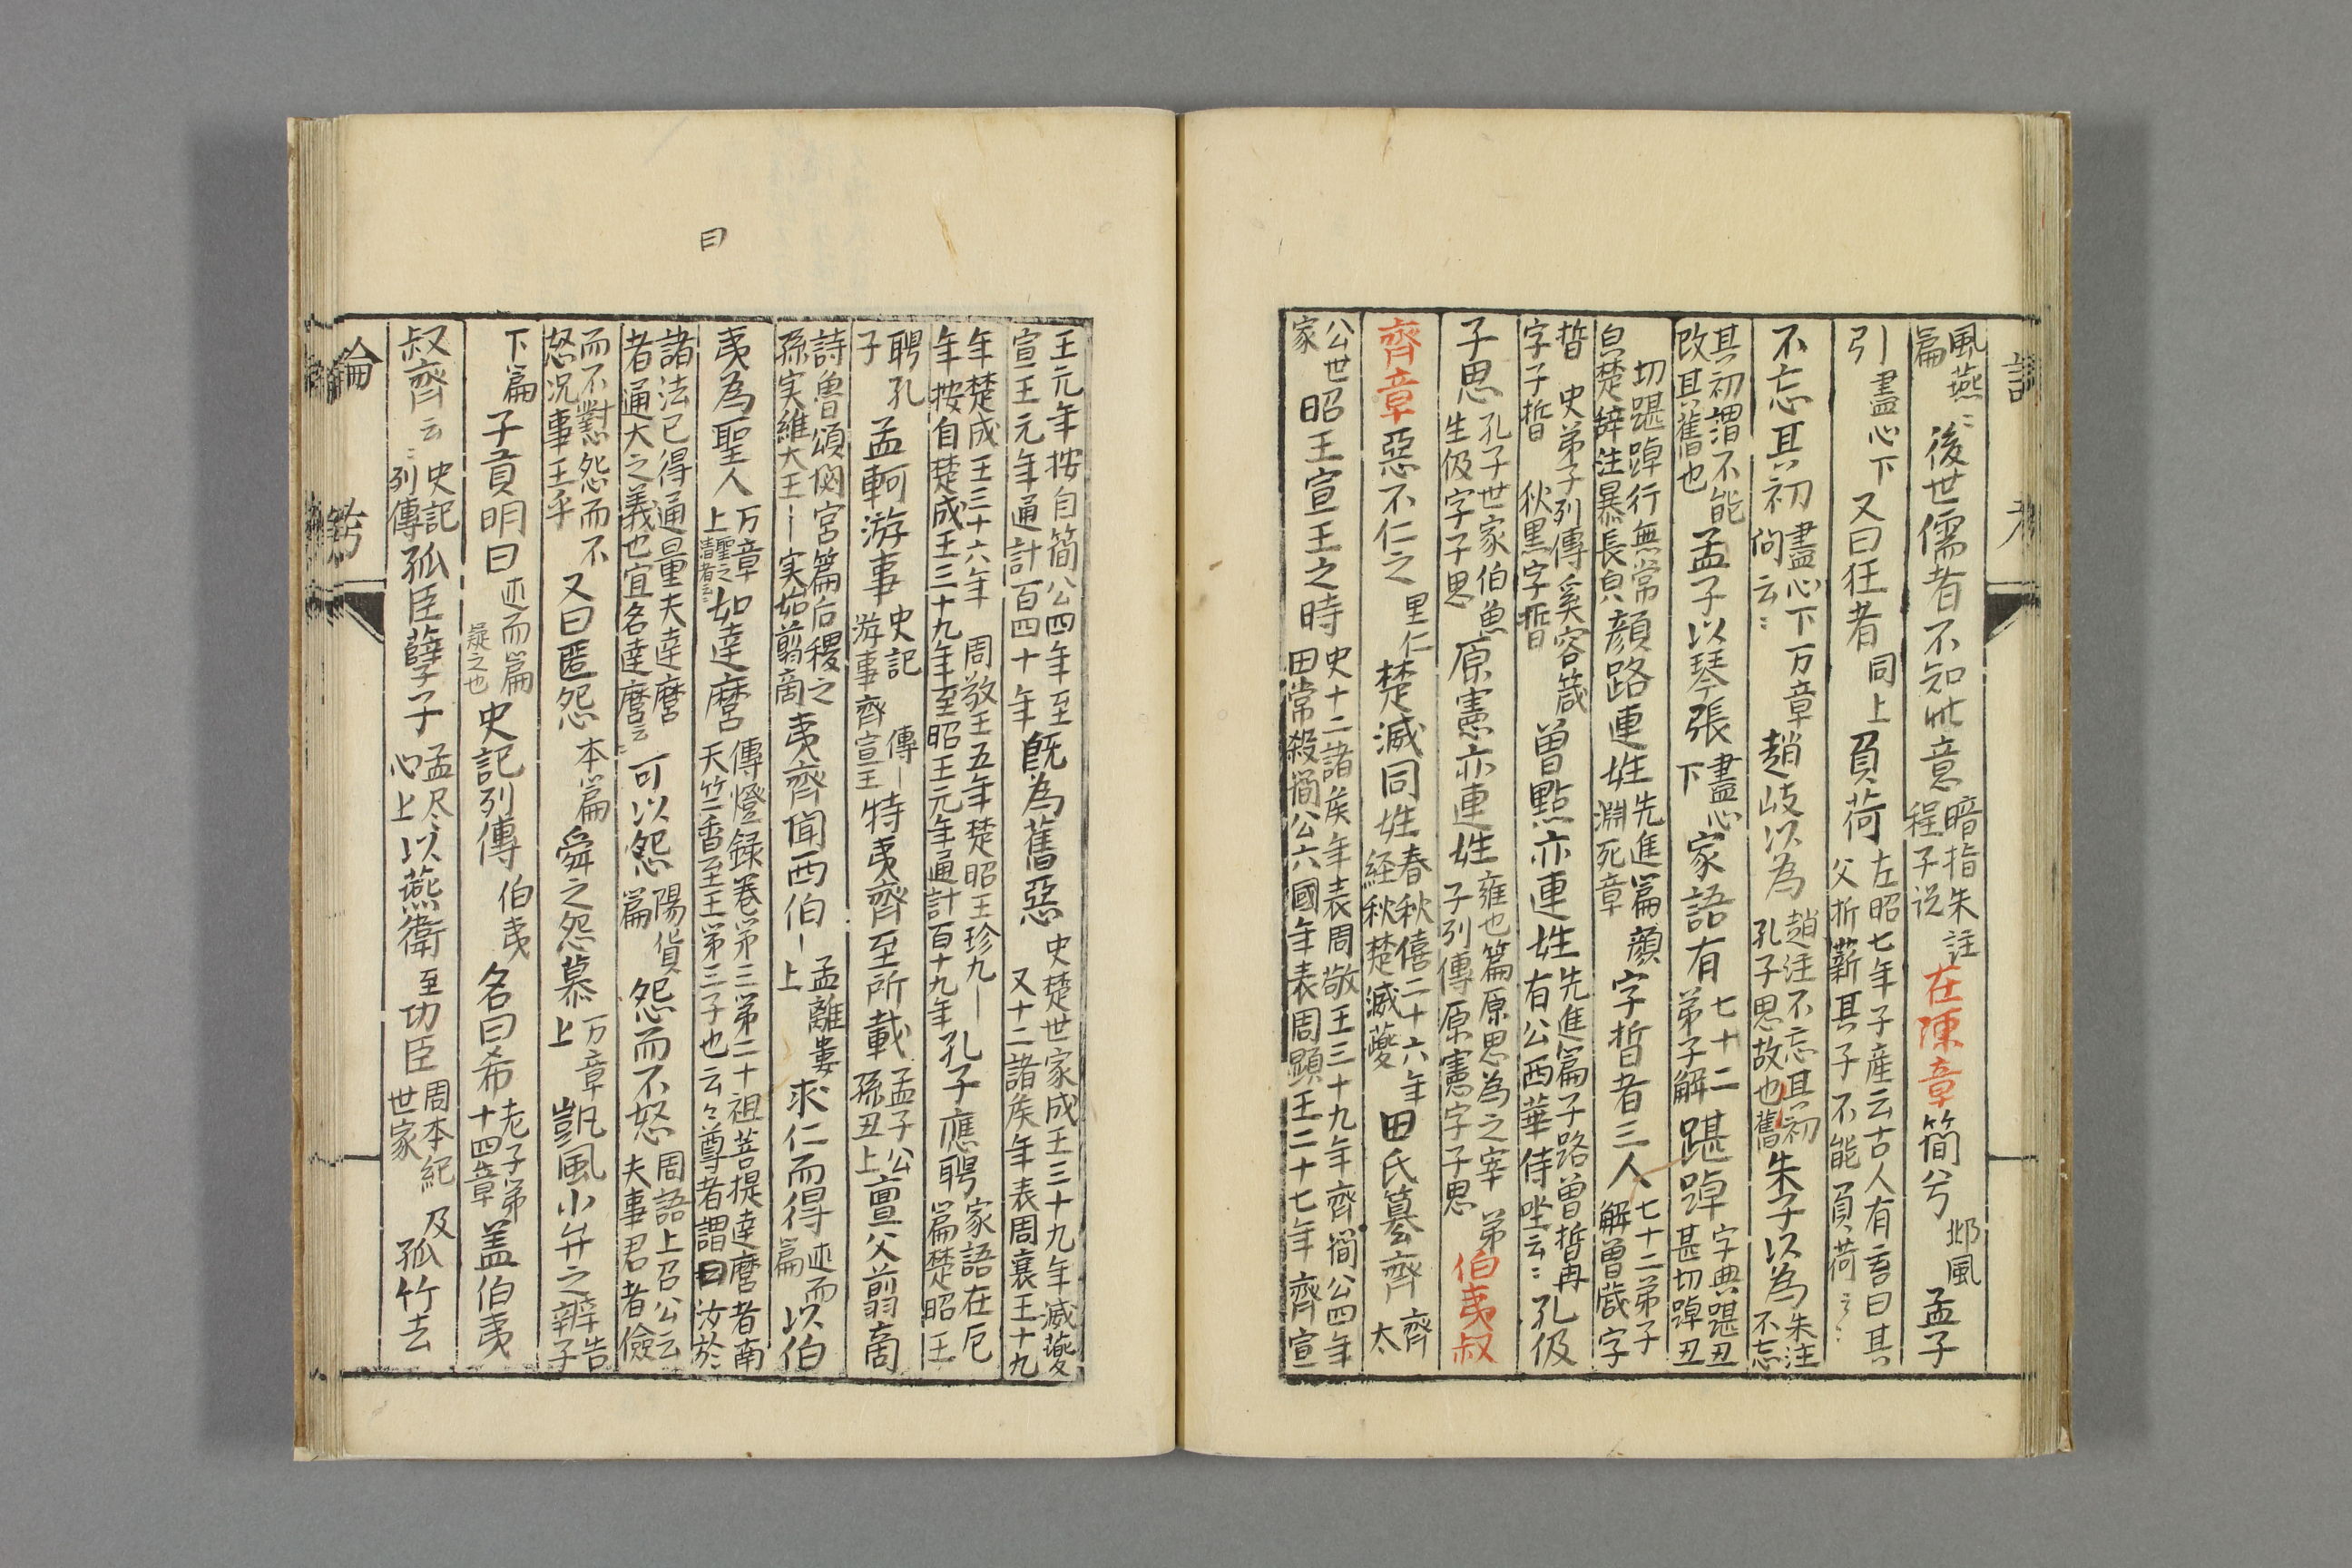 風燕〻篇後世儒者不知此意暗指朱註程子説在陳章簡兮邶風孟子
引盡心下又曰狂者同上負荷左昭七年子産云古人有言曰其父析薪其子不能負荷云〻
不忘其初盡心下万章問云〻趙岐以為趙注不忘其初孔子思故也舊朱子以為朱注不忘
其初謂不能改其舊也孟子以琴張盡心下家語有七十二弟子解踸踔字典踸丑甚切踔丑
切踸踔行無常皃楚辞注暴長皃顔路連姓先進篇顔淵死章字晳者三人七十二弟子解曽蒧字
晳史弟子列傳奚容箴字子晳狄黒字晳曽點亦連姓先進篇子路曽晳冉有公西華侍坐云〻孔伋
子思孔子世家伯魚生伋字子思原憲亦連姓雍也篇原思為之宰弟子列傳原憲字子思伯夷叔
齊章惡不仁之里仁楚滅同姓春秋僖二十六年経秋楚滅夔田氏簒齊齊太
公世家昭王宣王之時史十二諸侯年表周敬王三十九年齊簡公四年田常殺簡公六國年表周顕王二十七年齊宣
王元年按自簡公四年至宣王元年通計百四十年既為舊惡史楚世家成王三十九年滅夔又十二諸侯年表周襄王十九
年楚成王三十六年周敬王五年楚昭王珍九｜年按自楚成王三十九年至昭王元年通計百十九年孔子應聘家語在厄篇楚昭王
聘孔子孟軻游事史記傳｜游事齊宣王特夷齊至所載孟子公孫丑上亶父翦商
詩魯頌閟宮篇后稷之孫実維大王｜実始翦商夷齊聞西伯｜孟離婁上求仁而得述而篇以伯
夷為聖人万章上聖之清者云〻如達麿傳燈録巻第三第二十祖菩提達麿者南天竺香至王第三子也云〻尊者謂曰汝於
諸法已得通量夫達麿者通大之義也宜名達麿云〻可以怨陽貨篇怨而不怒周語上召公云夫事君者儉
而不懟怨而不怒况事王乎又曰匿怨本篇舜之怨慕万章上凱風小弁之辨告子
下篇子貢明曰述而篇疑之也史記列傳伯夷名曰希老子第十四章盖伯夷
叔齊云〻史記列傳孤臣孽子孟尽心上以燕衛至功臣周本紀及世家孤竹去
曰
論